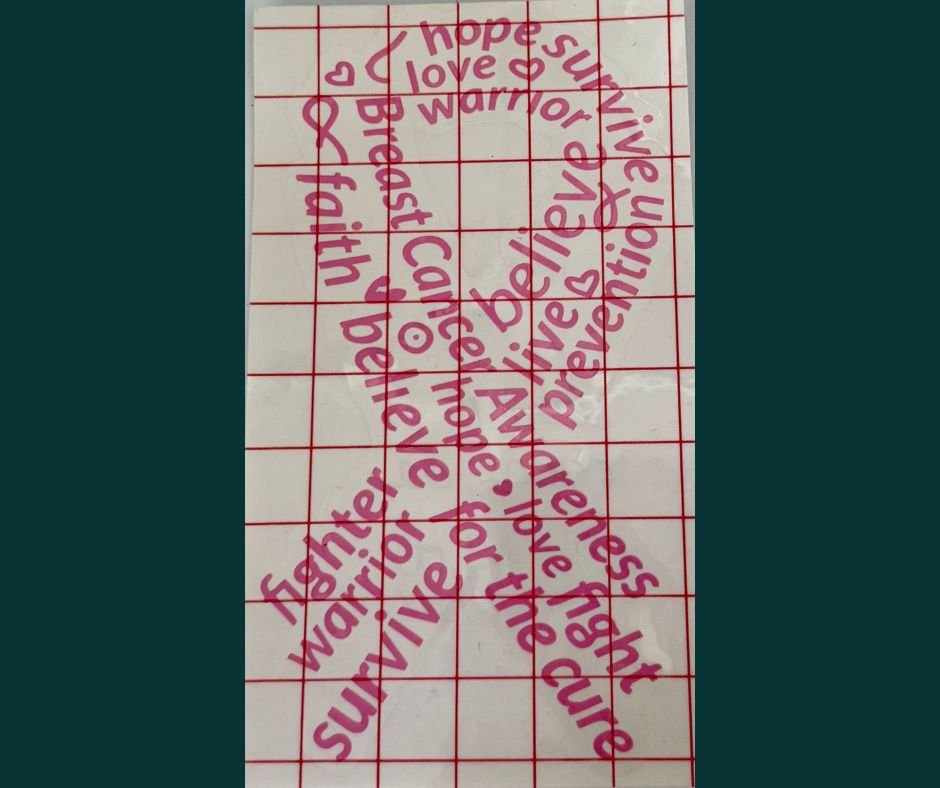 hope survive
love
warrior
prevention
believe
live
faith
Breast Cancer Awareness
believe
hope love fight
for the cure
fighter
warrior
survive